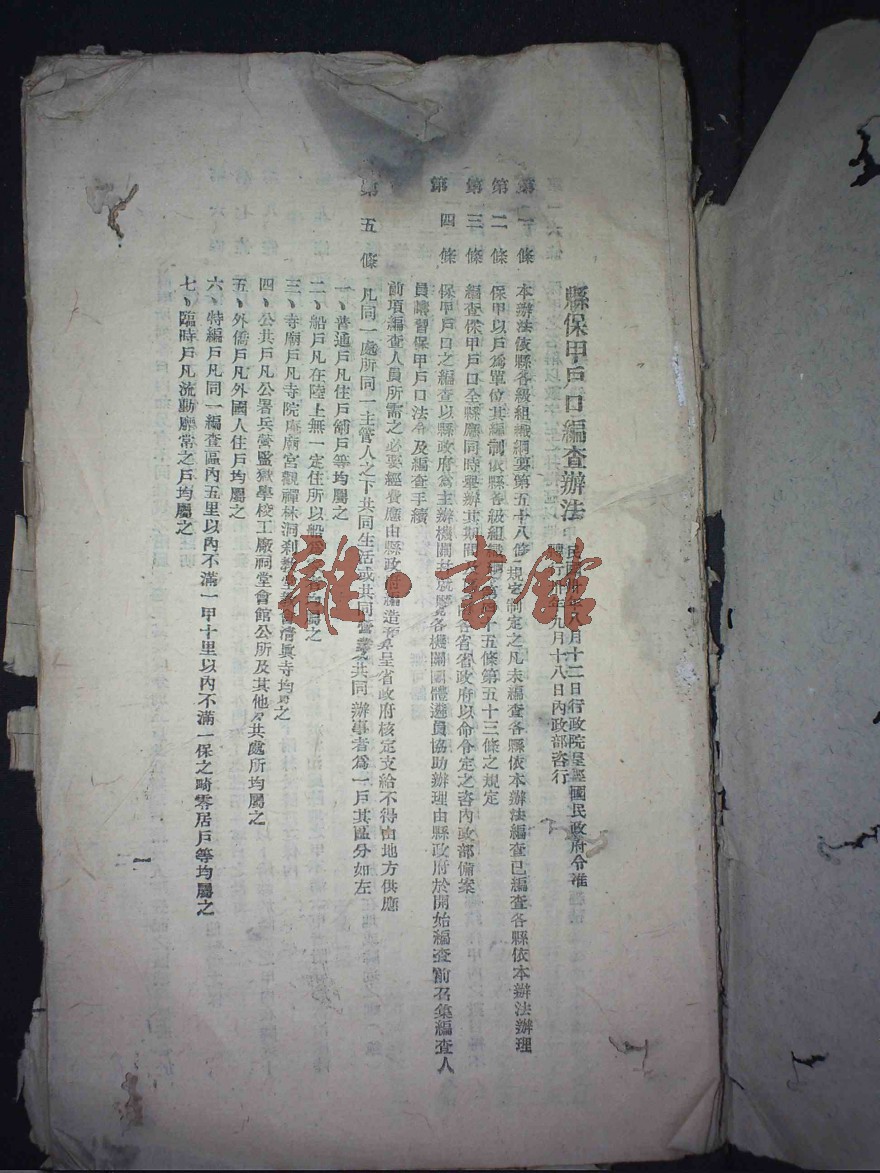 縣保甲戶口編查辦法
民國卅年八月十二日行政院呈經國民政府令准
卅年九月十八日內政部咨行
第一條 本辦法依縣各級組織綱要第五十八條規定制定之凡未編查各縣依本辦法編查已編查各縣依本辦法辦理
第二條 保甲以戶爲單位其編制依縣各級組織綱要 十五條第五十三條之規定
第三條 編查保甲戶口全縣應同時舉辦其期間 省政府以命令定之咨內政部備案
第四條 保甲戶口之編查以縣政府爲主辦機關 各機關團體選員協助辦理由縣政府於開始編查前召集編查人
員講習保甲戶口法令及編查手續
前項編查人員所需之必要經費應由縣政府編造預算呈省政府核定支給不得由地方供應
第五條 凡同一處所同一主管人之下共同生活或共同營業共同辦事者爲一戶其區分如左
一、普通戶凡住戶舖戶等均屬之
二、船戶凡在陸上無一定住所以船爲 屬之
三、寺廟戶凡寺院庵廟宮觀禪林洞刹教 清眞寺均屬之
四、公共戶凡公署兵營監獄學校工廠祠堂會館公所及其他公共處所均屬之
五、外僑戶凡外國人住戶均屬之
六、特編戶凡同一編查區內五里以內不滿一甲十里以內不滿一保之畸零居戶等均屬之
七、臨時戶凡流動靡常之戶均屬之
雜·書館